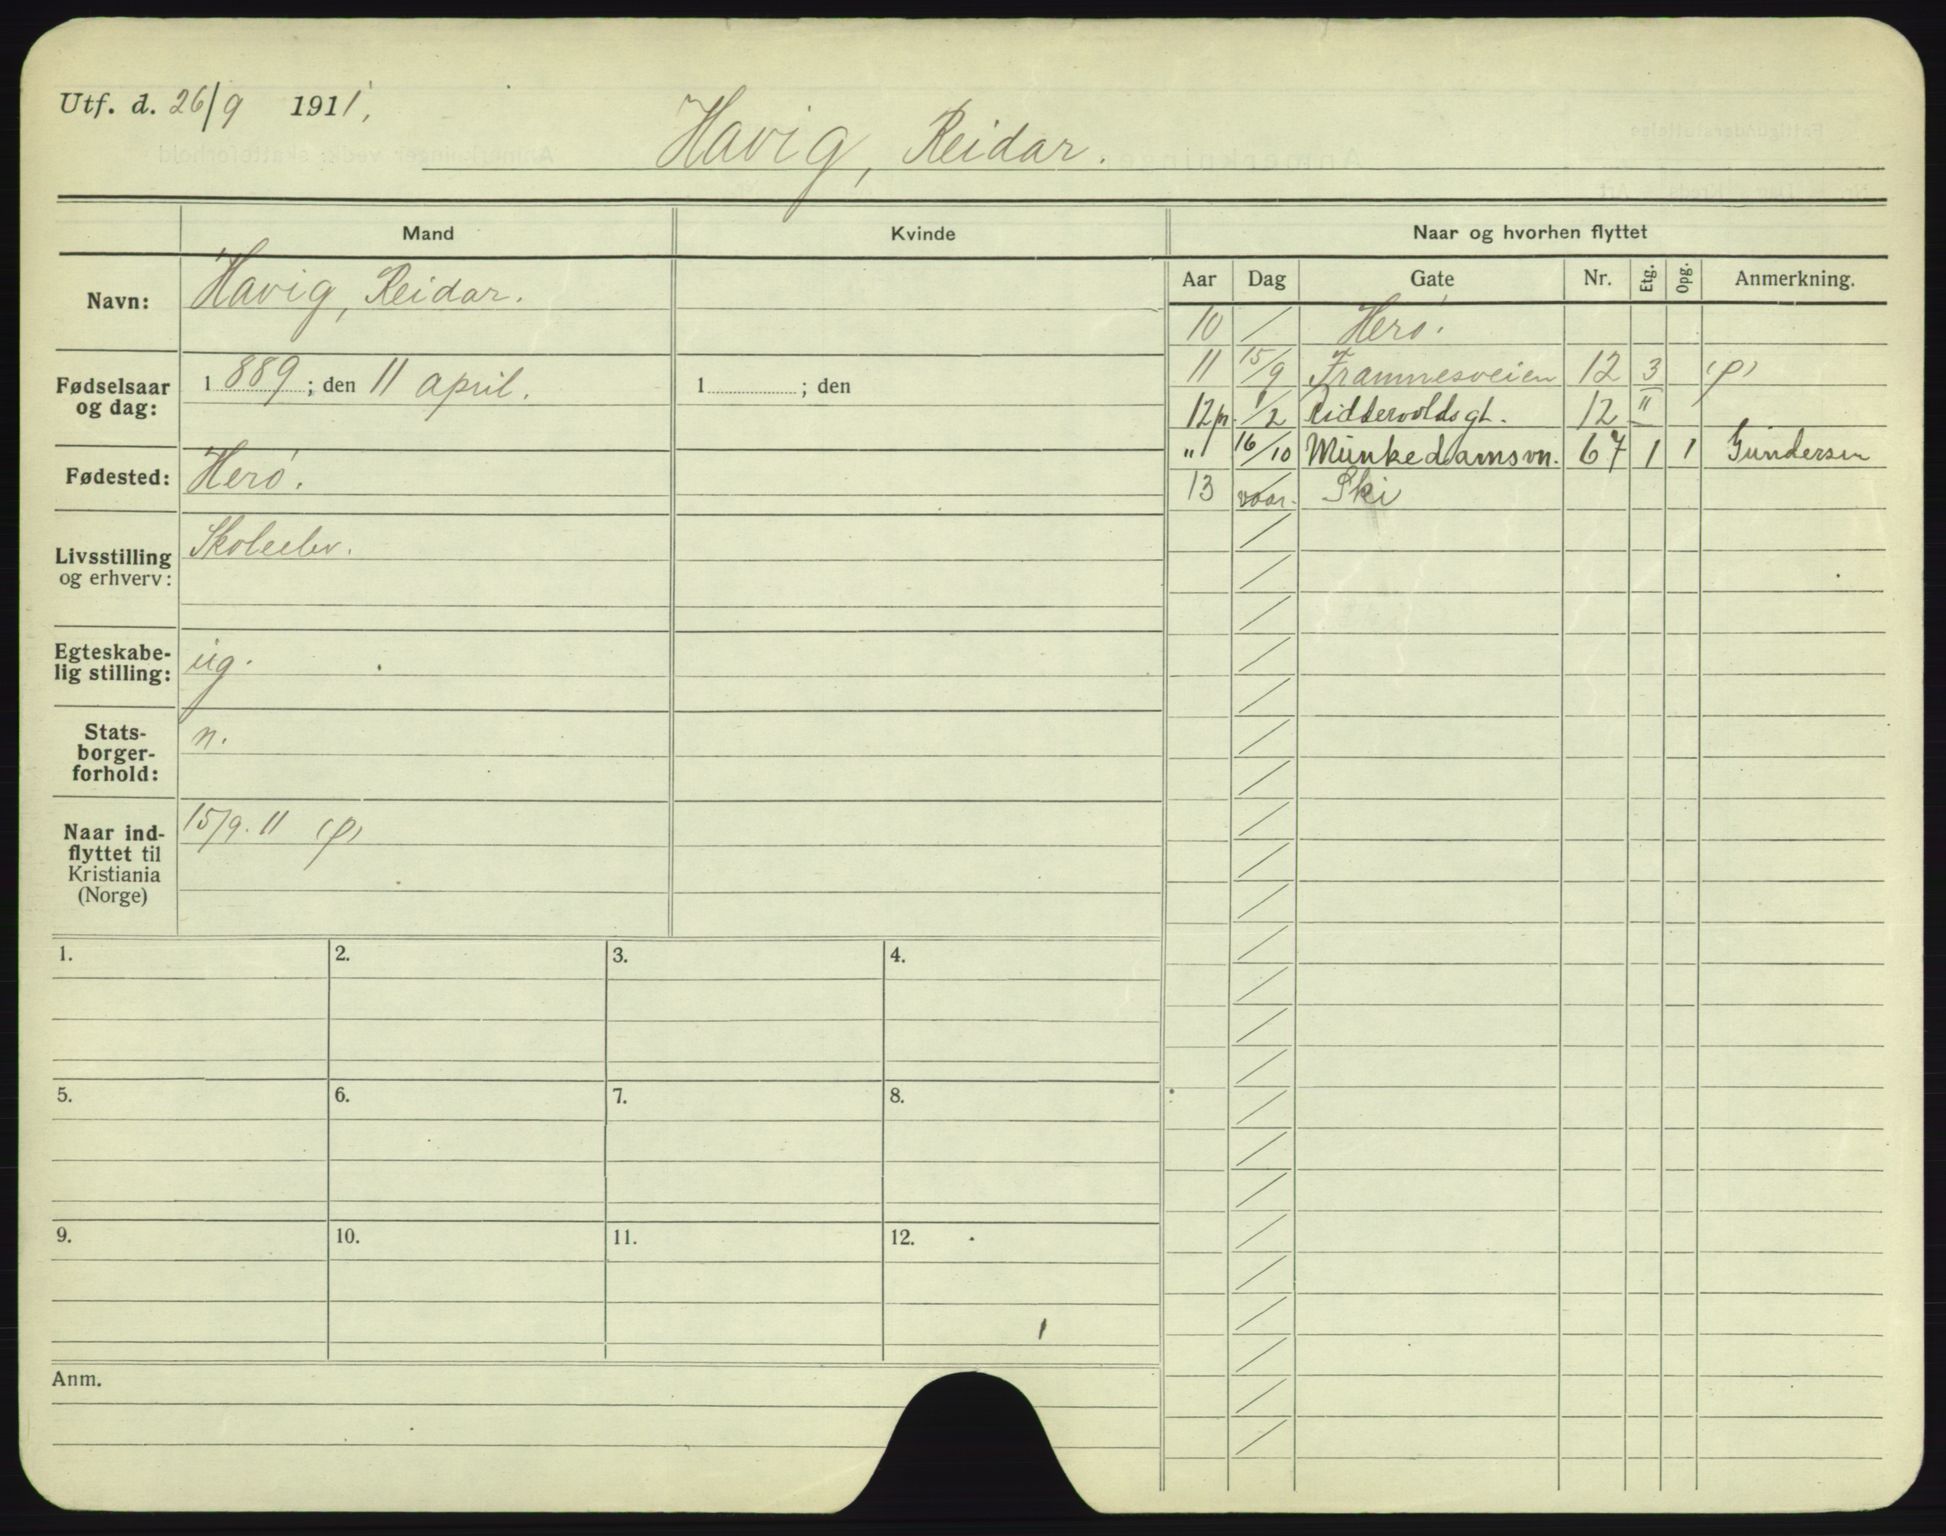 Utf. d. 26/9 1911,
Havig, Reidar.
Mand Kvinde Naar og hvorhen flyttet
Navn: Havig, Reidar.
Fødselsaar og dag: 1889; den 11 april. 1 ; den
Fødested: Herö.
Livsstilling og erhverv: Skoleelev.
Egteskabe-
lig stilling: ug.
Stats-
borger-
forhold: n.
Naar ind-
flyttet til
Kristiania
(Norge) 15/9. 11 (p)
Aar Dag Gate Nr. Etg. Opg. Anmerkning.
10 / Herö.
11 15/9 Framnesveien 12 3 (p)
12 pr. 1/2 Riddervoldsgt. 12 "
" 16/10 Munkedamsvn. 67 1 1 Gundersen
13 vaar. Ski
1. 2. 3. 4.
5. 6. 7. 8.
9. 10. 11. 12.
Anm.